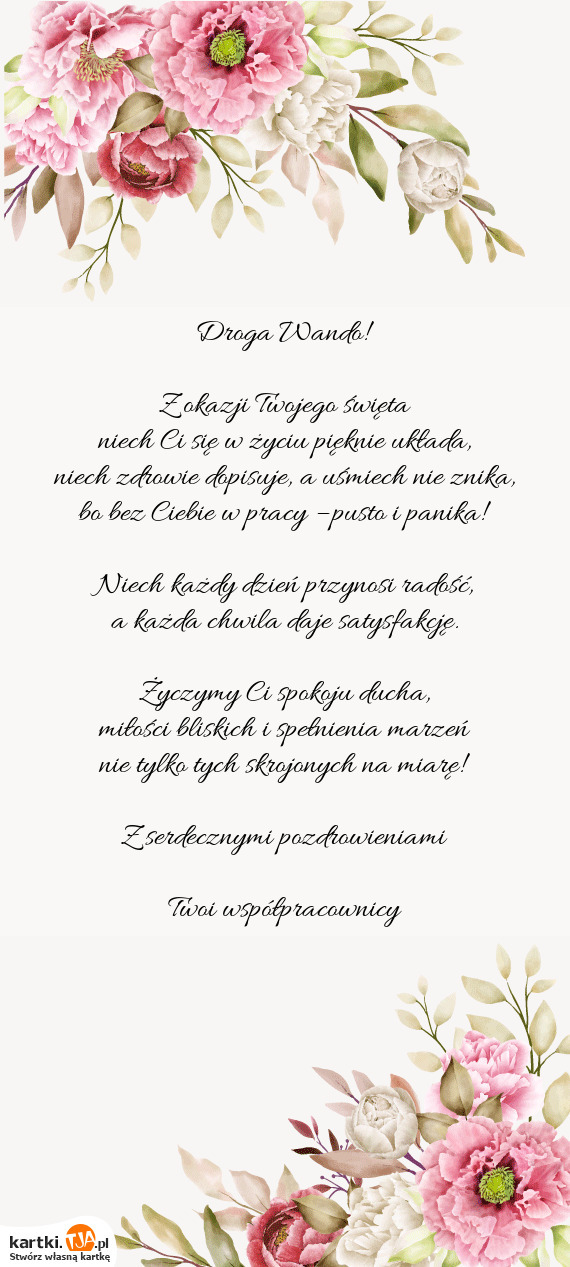 Droga Wando!
Z okazji Twojego święta
niech Ci się w życiu pięknie układa,
niech zdrowie dopisuje, a uśmiech nie znika,
bo bez Ciebie w pracy –pusto i panika!
Niech każdy dzień przynosi radość,
a każda chwila daje satysfakcję.
Życzymy Ci spokoju ducha,
miłości bliskich i spełnienia marzeń
nie tylko tych skrojonych na miarę!
Z serdecznymi pozdrowieniami
Twoi współpracownicy
kartki.TJA.pl
Stwórz własną kartkę